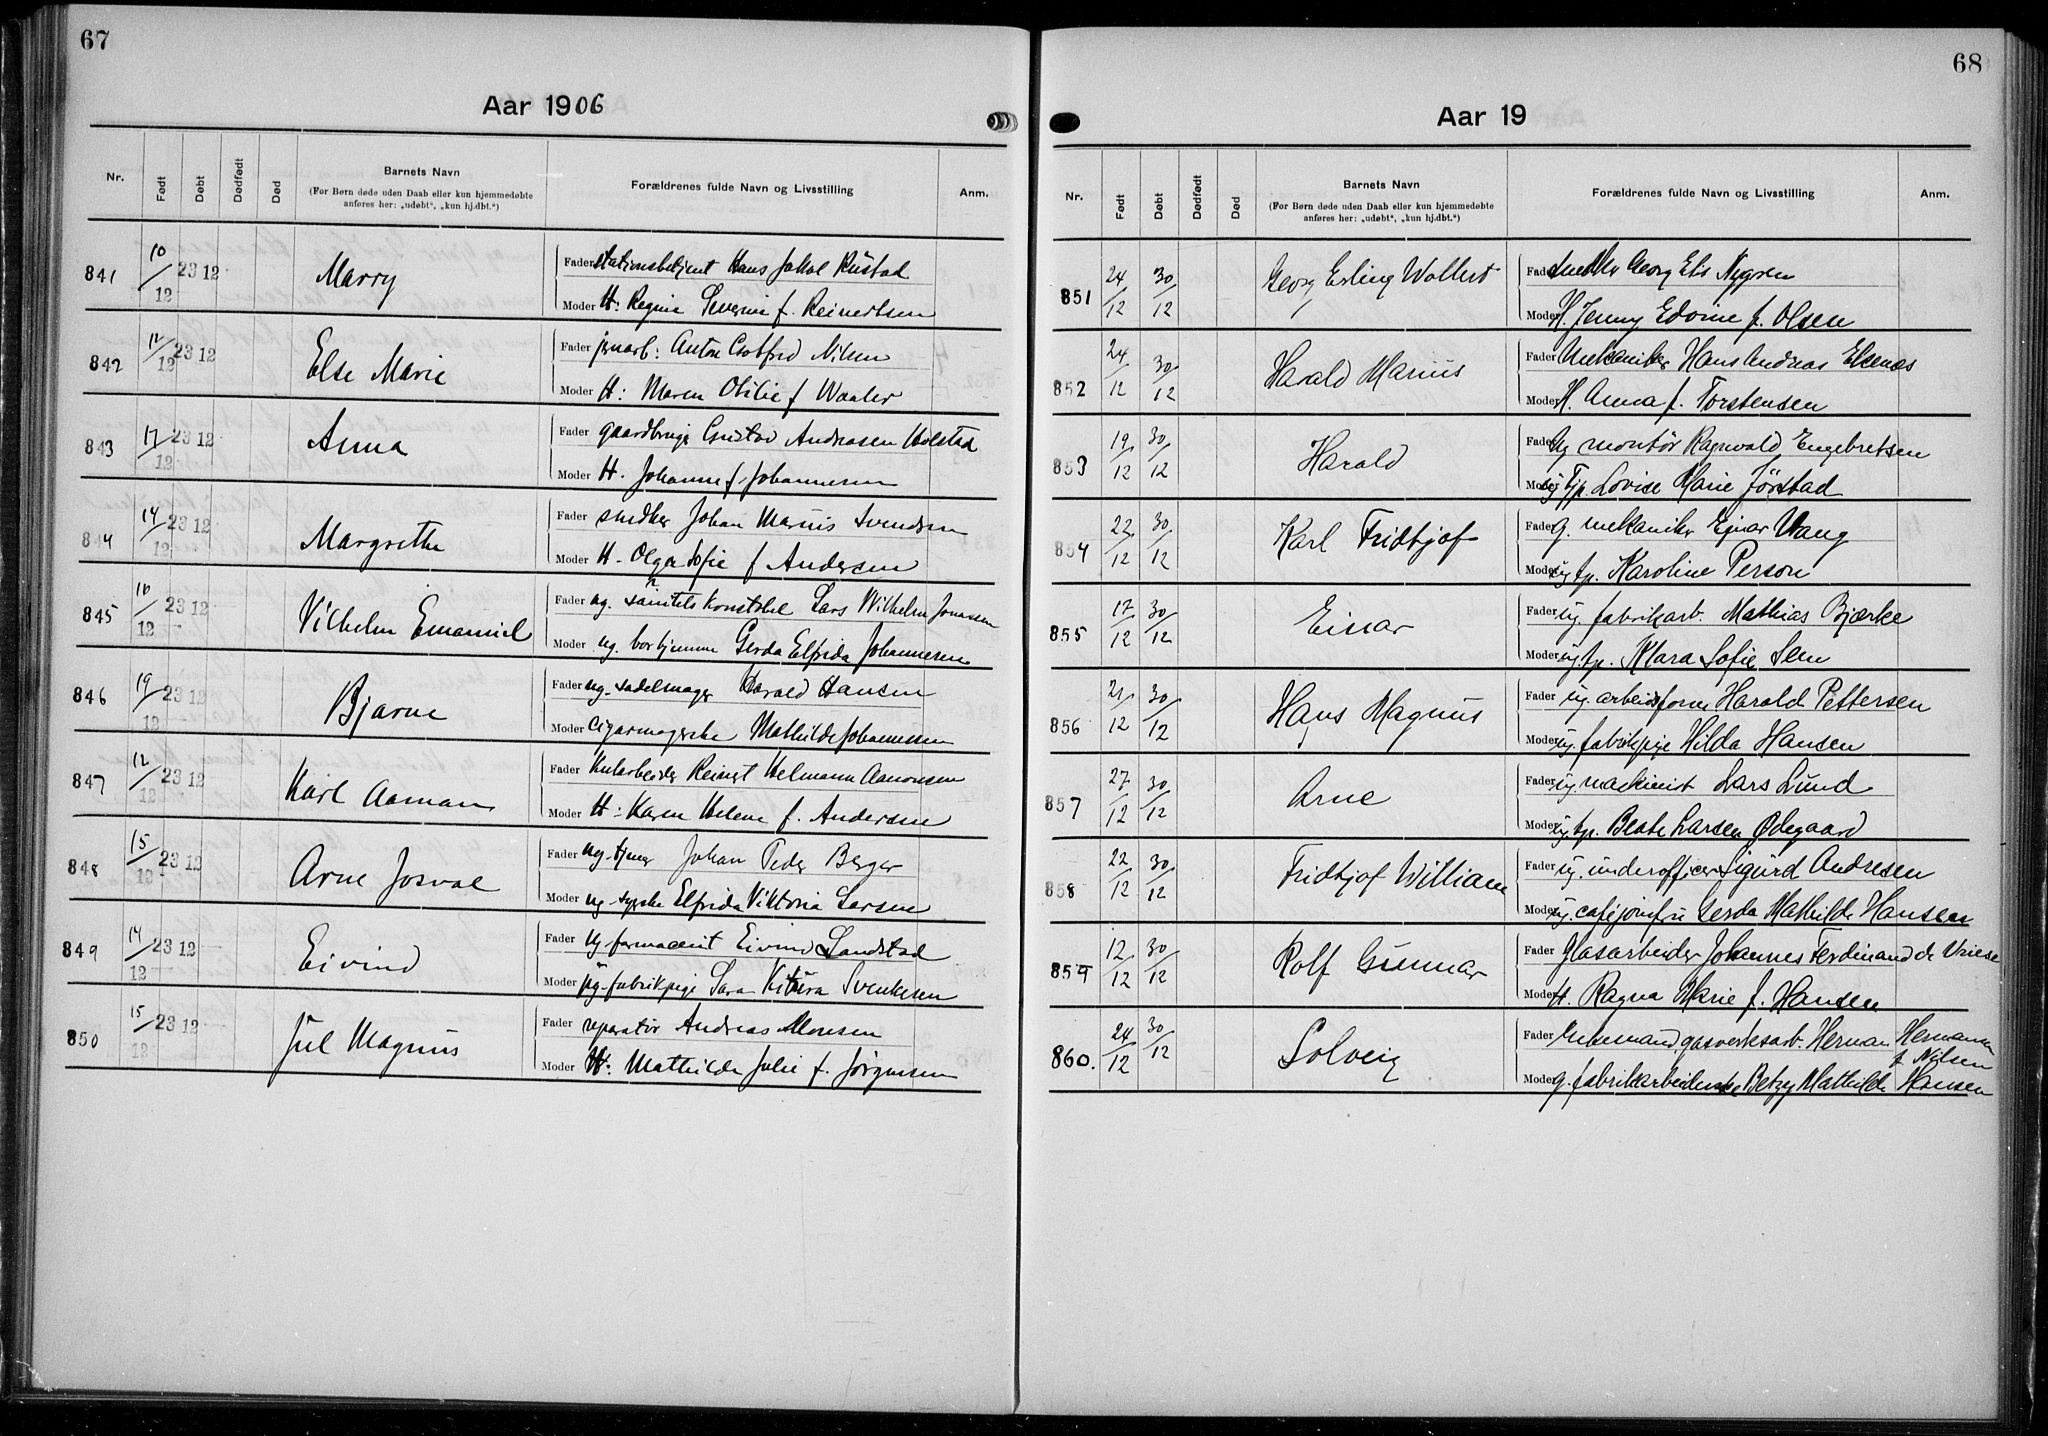 67
Aar 1906
Nr.
Født
Døbt
Dødfødt
Død
Barnets Navn
(For Børn døde uden Daab eller kun hjemmedøbte
anføres her: „udøbt“, „kun hj.dbt.“)
Forældrenes fulde Navn og Livsstilling
Anm.
841 10/12 23 12 Marry Fader stationsbetjent Hans Jakob Rustad
Moder H: Regine Severine f. Reinertsen
842 12/12 23 12 Else Marie Fader jernarb: Anton Gotfred Nilsen
Moder H: Maren Otilie f Waaler
843 17/12 23 12 Anna Fader gaardbruger Gustav Andreasen Holstad
Moder H. Johanne f. Johannesen
844 14/12 23 12 Margrethe Fader snedker Johan Marius Svendsen
Moder H. Olga Sofie f Andersen
845 16/12 23 12 Vilhelm Emanuel Fader ug. Lars Wilhelm Jonassen
Moder ug. Gerda Elfrida Johannesen
846 19/12 23 12 Bjarne Fader ug. sadelmager Harald Hansen
Moder cigarmagerske Mathilde Johannessen
847 12/12 23 12 Karl Aaman Fader Reinert Helmann Aanonsen
Moder H: Karen Helene f. Andersen
848 15/12 23 12 Arne Josval Fader ug. tjener Johan Peder Berger
Moder ug. syerske Elfrida Viktoria Larsen
849 14/12 23 12 Eivind Fader ug farmaceut Eivind Sandstad
Moder ug. fabrikpige Sara Svenksen
850 15/12 23 12 Jul Magnus Fader reparatør Andreas Monsen
Moder H: Mathilde Julie f. Jørgensen
68
Aar 19
Nr.
Født
Døbt
Dødfødt
Død
Barnets Navn
(For Børn døde uden Daab eller kun hjemmedøbte
anføres her: „udøbt“, „kun hj.dbt.“)
Forældrenes fulde Navn og Livsstilling
Anm.
851 24/12 30/12 Georg Erling Wollert Fader snedker Georg Elis Nygren
Moder H. Jenny Edvine f. Olsen
852 24/12 30/12 Harald Marius Fader Mekaniker Hans Andreas Elsenes
Moder H. Anna f. Torstensen
853 19/12 30/12 Harald Fader ug montør Ragnvald Engebretsen
Moder ug tjp. Lovise Marie Jørstad
854 22/12 30/12 Karl Fridtjof Fader g. mekaniker Ejnar Wang
Moder ug tp. Karoline Person
855 17/12 30/12 Einar Fader ug. fabrikarb. Mathias Bjærke
Moder ug. tp. Klara Sofie Seen
856 21/12 30/12 Hans Magnus Fader ug. arbeidsform Harald Pettersen
Moder ug. fabrikpige Hilda Hansen
857 27/12 30/12 Arne Fader ug. maskinist Lars Lund
Moder ug. tp. Beate Larsen Ødegaard
858 22/12 30/12 Fridtjof William Fader ug. underofficer Sigurd Andresen
Moder ug. cafejomfru Gerda Mathilde Hansen
859 12/12 30/12 Rolf Gunnar Fader Glasarbeider Johannes Ferdinand de Vriese
Moder H. Ragna Marie f. Hansen
860. 24/12 30/12 Solveig Fader Enkemand, gasverksarb. Herman Hermansen
f Nilsen
Moder g. fabrikarbeiderske Betzy Mathilde Hansen